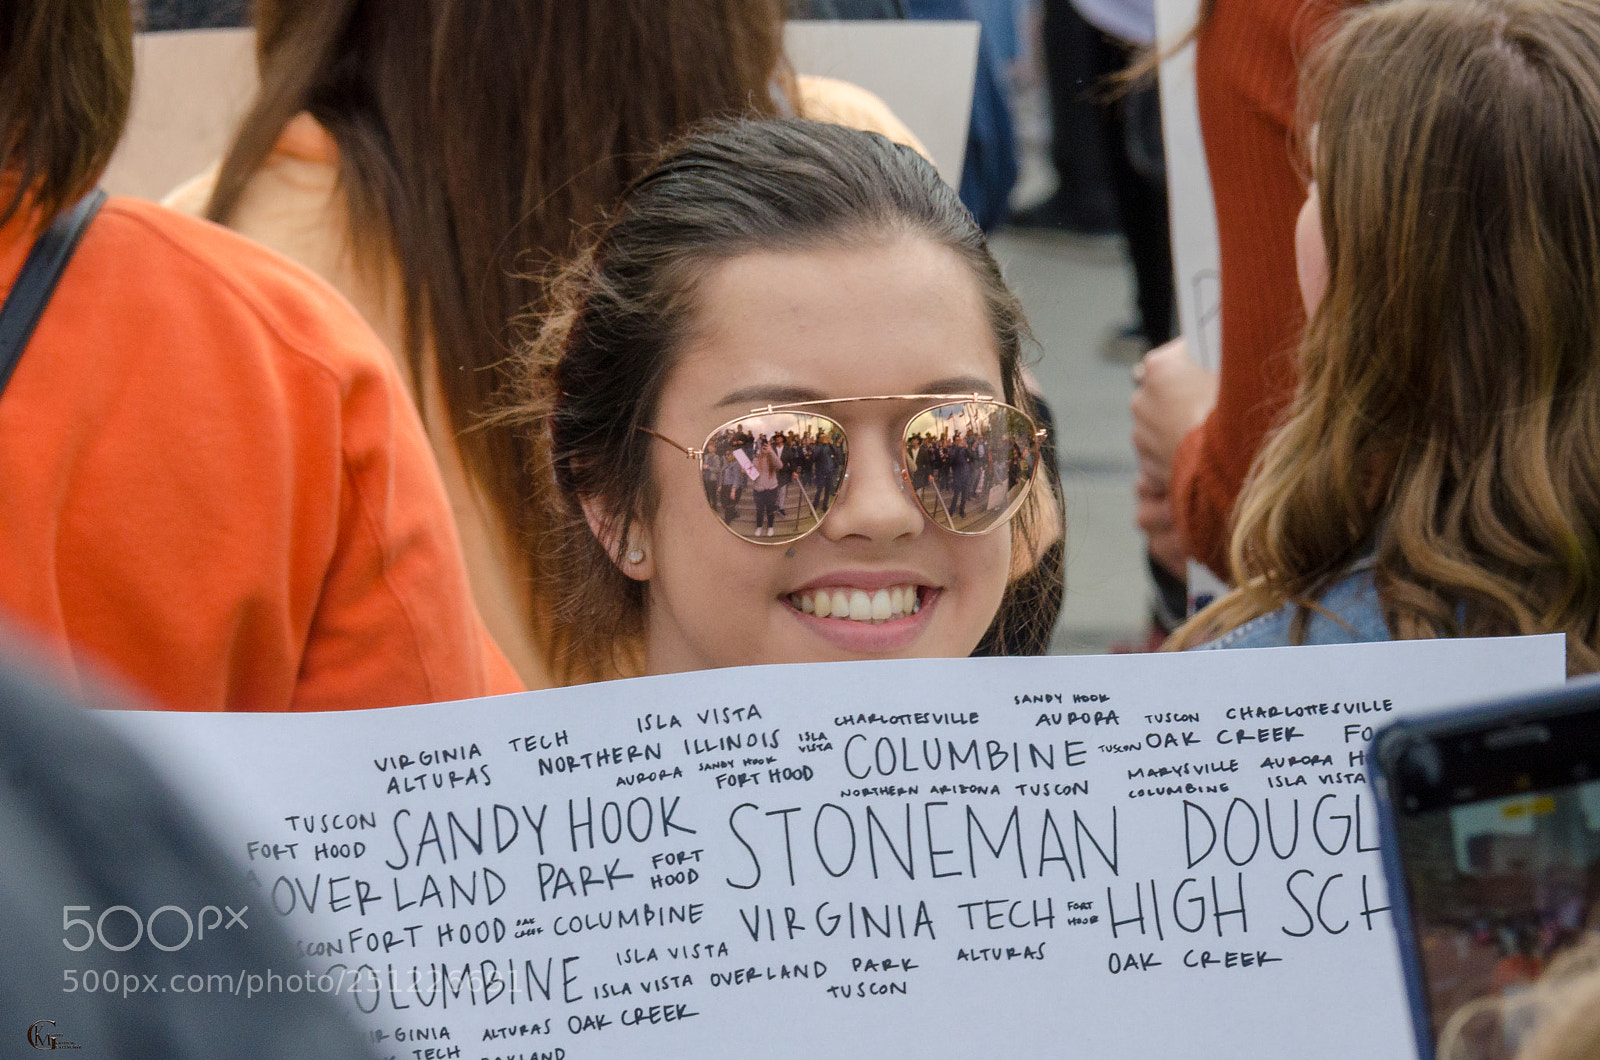 SANDY HOOK
ISLA VISTA CHARLOTTESVILLE AURORA TUSCON CHARLOTTESVILLE
VIRGINIA TECH NORTHERN ILLINOIS ISLA VISTA COLUMBINE TUSCON OAK CREEK FO
ALTURAS AURORA SANDY HOOK FORT HOOD MARYSVILLE AURORA H
NORTHERN ARIZONA TUSCON COLUMBINE ISLA VISTA
TUSCON SANDY HOOK STONEMAN DOUGL
FORT HOOD
OVERLAND PARK FORT HOOD
SCON FORT HOOD OAK CREEK COLUMBINE VIRGINIA TECH FORT HOOD HIGH SCH
OLUMBINE ISLA VISTA ALTURAS OAK CREEK
ISLA VISTA OVERLAND PARK
TUSCON
IRGINIA ALTURAS OAK CREEK
TECH OAKLAND
500px
500px.com/photo/251226691